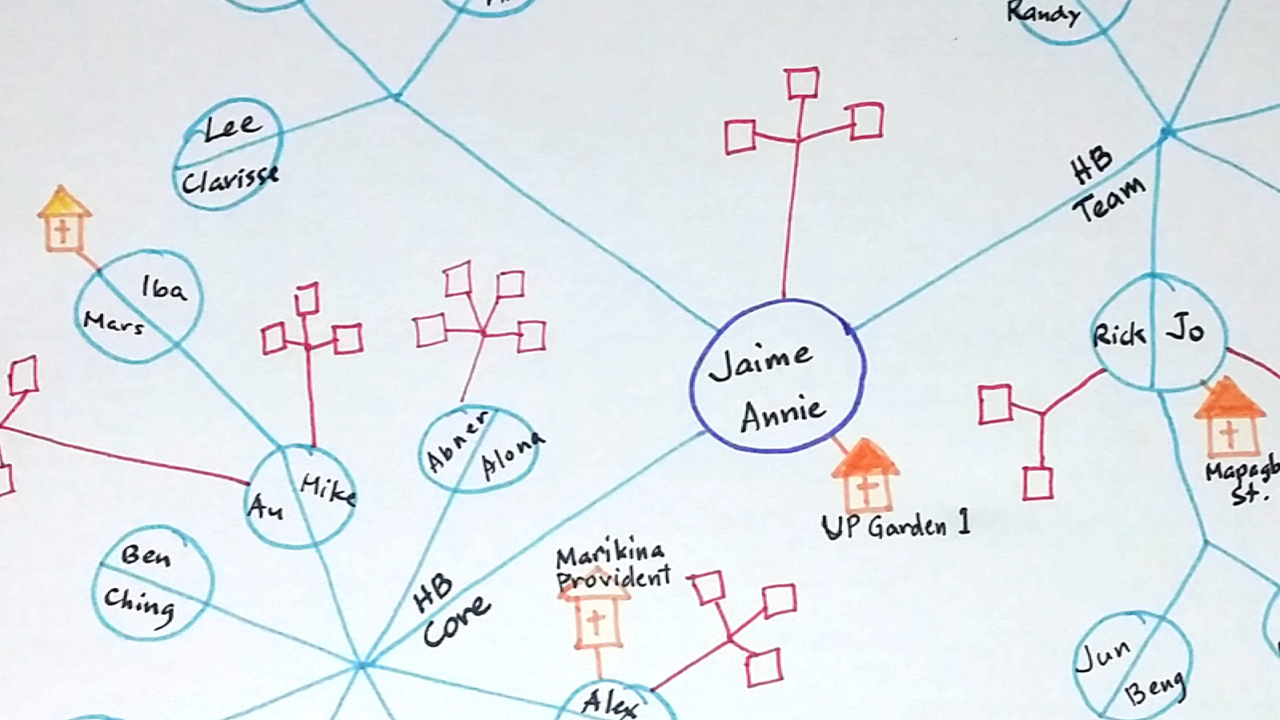 Randy
Lee
Clarisse
HB
Team
Iba
Mars
Jaime
Annie
Rick Jo
Abner
Alona
Mike
Au
Mapagb
St.
UP Garden 1
Ben
Ching
Marikina
Provident
HB
Core
Jun
Beng
Alex